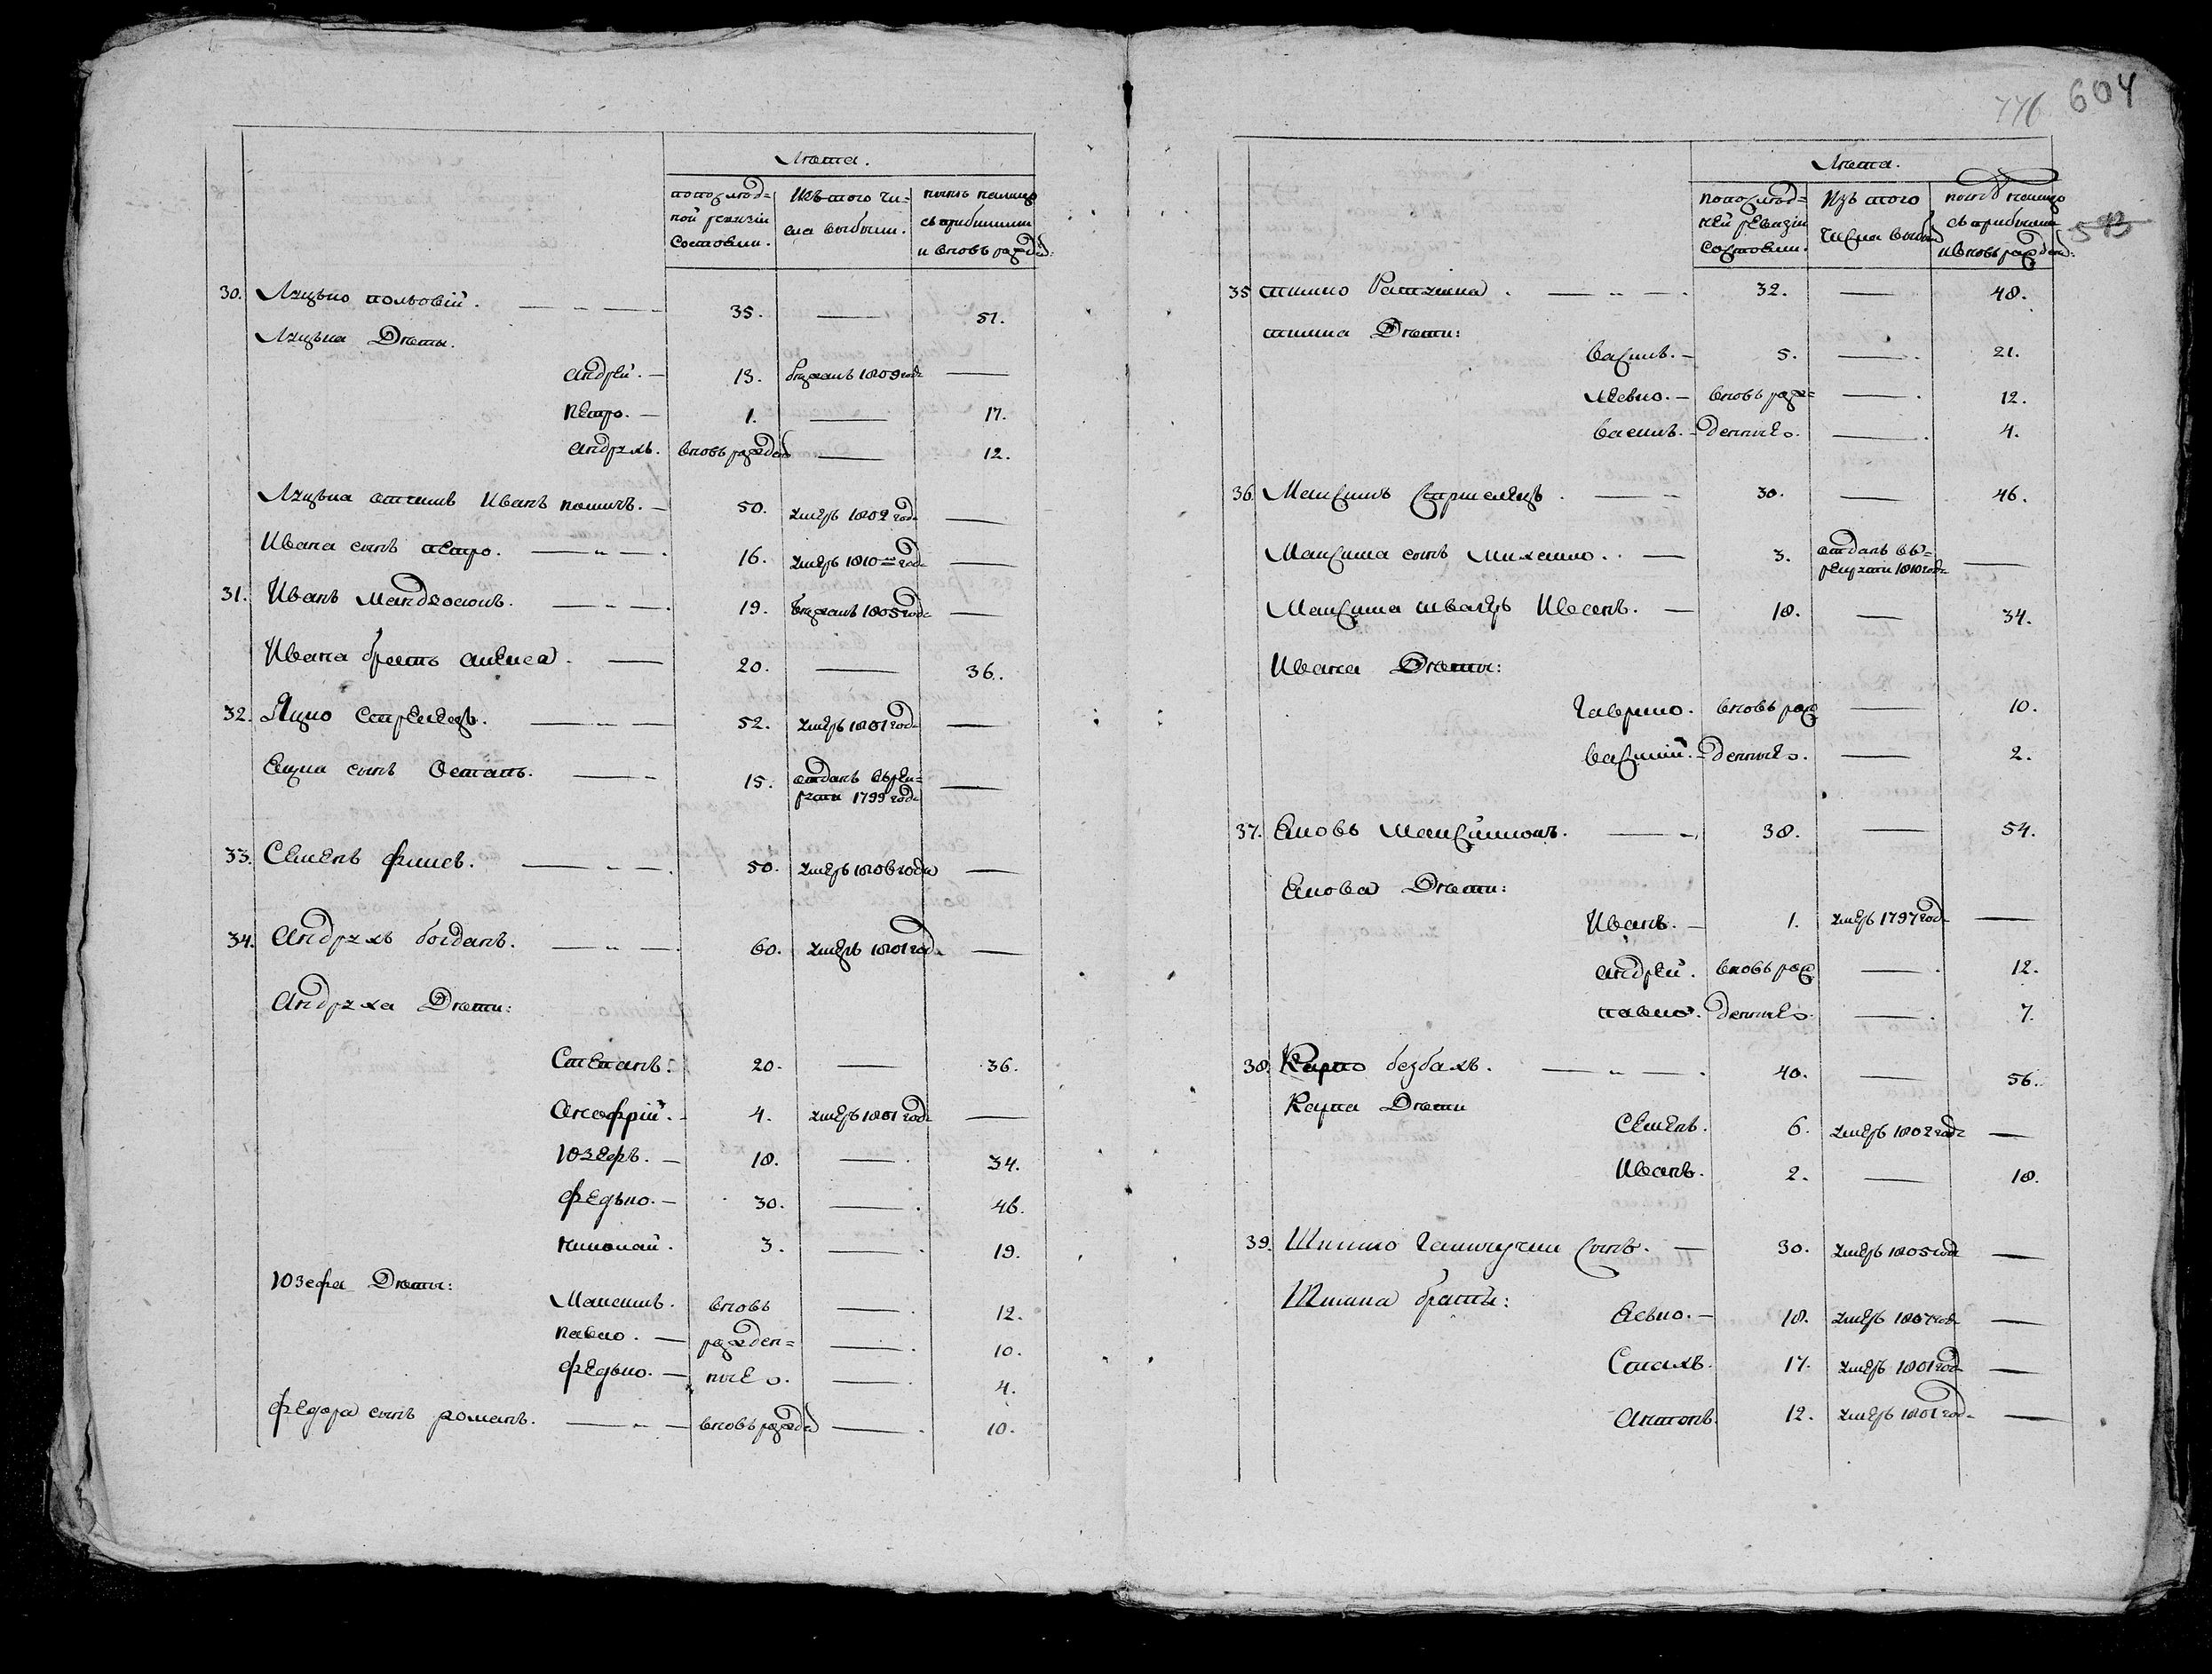 Лѣта.
по послѣд=
ной ревизіи
состояли.
Изъ того чи=
сла выбыли.
нынѣ на лицо
съ прибылыми
и вновь рожден:
30. Яцько . — „ — 35. — 51.
Яцька Дѣти.
Андрей. — 13. бежалъ 1809 года —
Петро. — 1. — 17.
Андрухъ. вновь рожден — 12.
Яцька отчимъ Иванъ . — 50. умеръ 1802 года —
Ивана сынъ петро. — „ — 16. умеръ 1810 года —
31. Иванъ . — „ — 19. бежалъ 1805 года —
Ивана братъ алекса. — 20. — 36.
32. Яцко Стрелецъ. — „ — 52. умеръ 1801 года —
Яцка сынъ Остапъ. — „ 15. отданъ въ рек=
руты 1799 года —
33. Семенъ . — „ — 50. умеръ 1806 года —
34. Андрухъ богданъ. — „ — 60. умеръ 1801 года —
Андруха Дѣти:
Степанъ. 20. — 36.
Анофрій. — 4. умеръ 1801 года —
Юзефъ. — 18. — 34.
Федько. — 30. — 46.
николай. 3. — 19.
Юзефа Дѣти:
Максимъ. вновь — 12.
павло. — рожден= — 10.
Федько. — ные — 4.
Федора сынъ романъ. — „ — вновь рожден — 10.
776 604
Лѣта.
по послѣд=
ней ревизіи
состояли.
Изъ того
числа выбыли
нынѣ на лицо
съ прибылыми
и вновь рожден:
593
35 . — „ — 32. — 48.
Дѣти:
Василь. — 5. — 21.
Левко. — вновь рож= — 12.
Василь. — денные. — 4.
36. Максимъ Стрилецъ. — 30. — 46.
Максима сынъ Михайло. — 3. отданъ въ
рекруты 1810 года —
Максима швагръ Иванъ. — 18. — 34.
Ивана Дѣти:
Гаврило. вновь рож — 10.
Василій. — денные. — 2.
37. Яковъ . — „ 38. — 54.
Якова Дѣти:
Иванъ. — 1. умеръ 1797 года —
Андрей. вновь рож — 12.
павло. денные. — 7.
38. Карпо безбахъ. — „ — 40. — 56.
Карпа Дѣти
Семенъ. 6. умеръ 1802 года —
Иванъ. 2. — 18.
39. сынъ. — 30. умеръ 1805 года —
браты:
Ясько. — 18. умеръ 1807 года —
17. умеръ 1801 года —
Антонъ. 12. умеръ 1801 года —